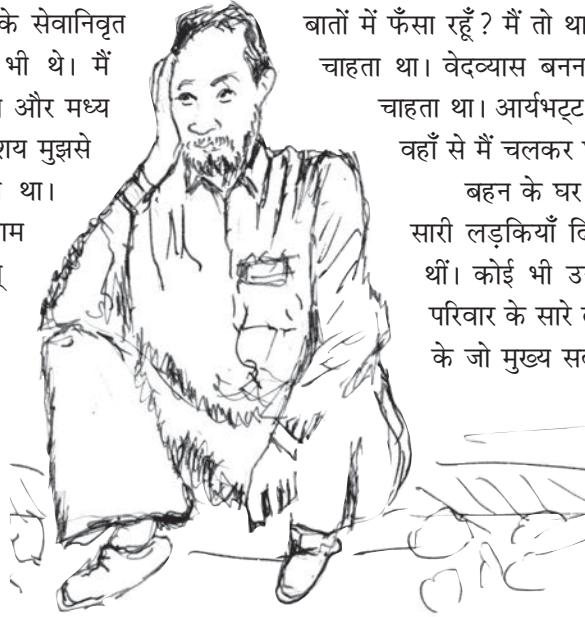 के सेवानिवृत
भी थे। मैं
और मध्य
मुझसे
था।
बातों में फँसा रहूँ? मैं तो
चाहता था। वेदव्यास
चाहता था। आर्यभट्ट
वहाँ से मैं चलकर
बहन के घर
सारी लड़कियाँ
थीं। कोई भी
परिवार के सारे
के जो मुख्य